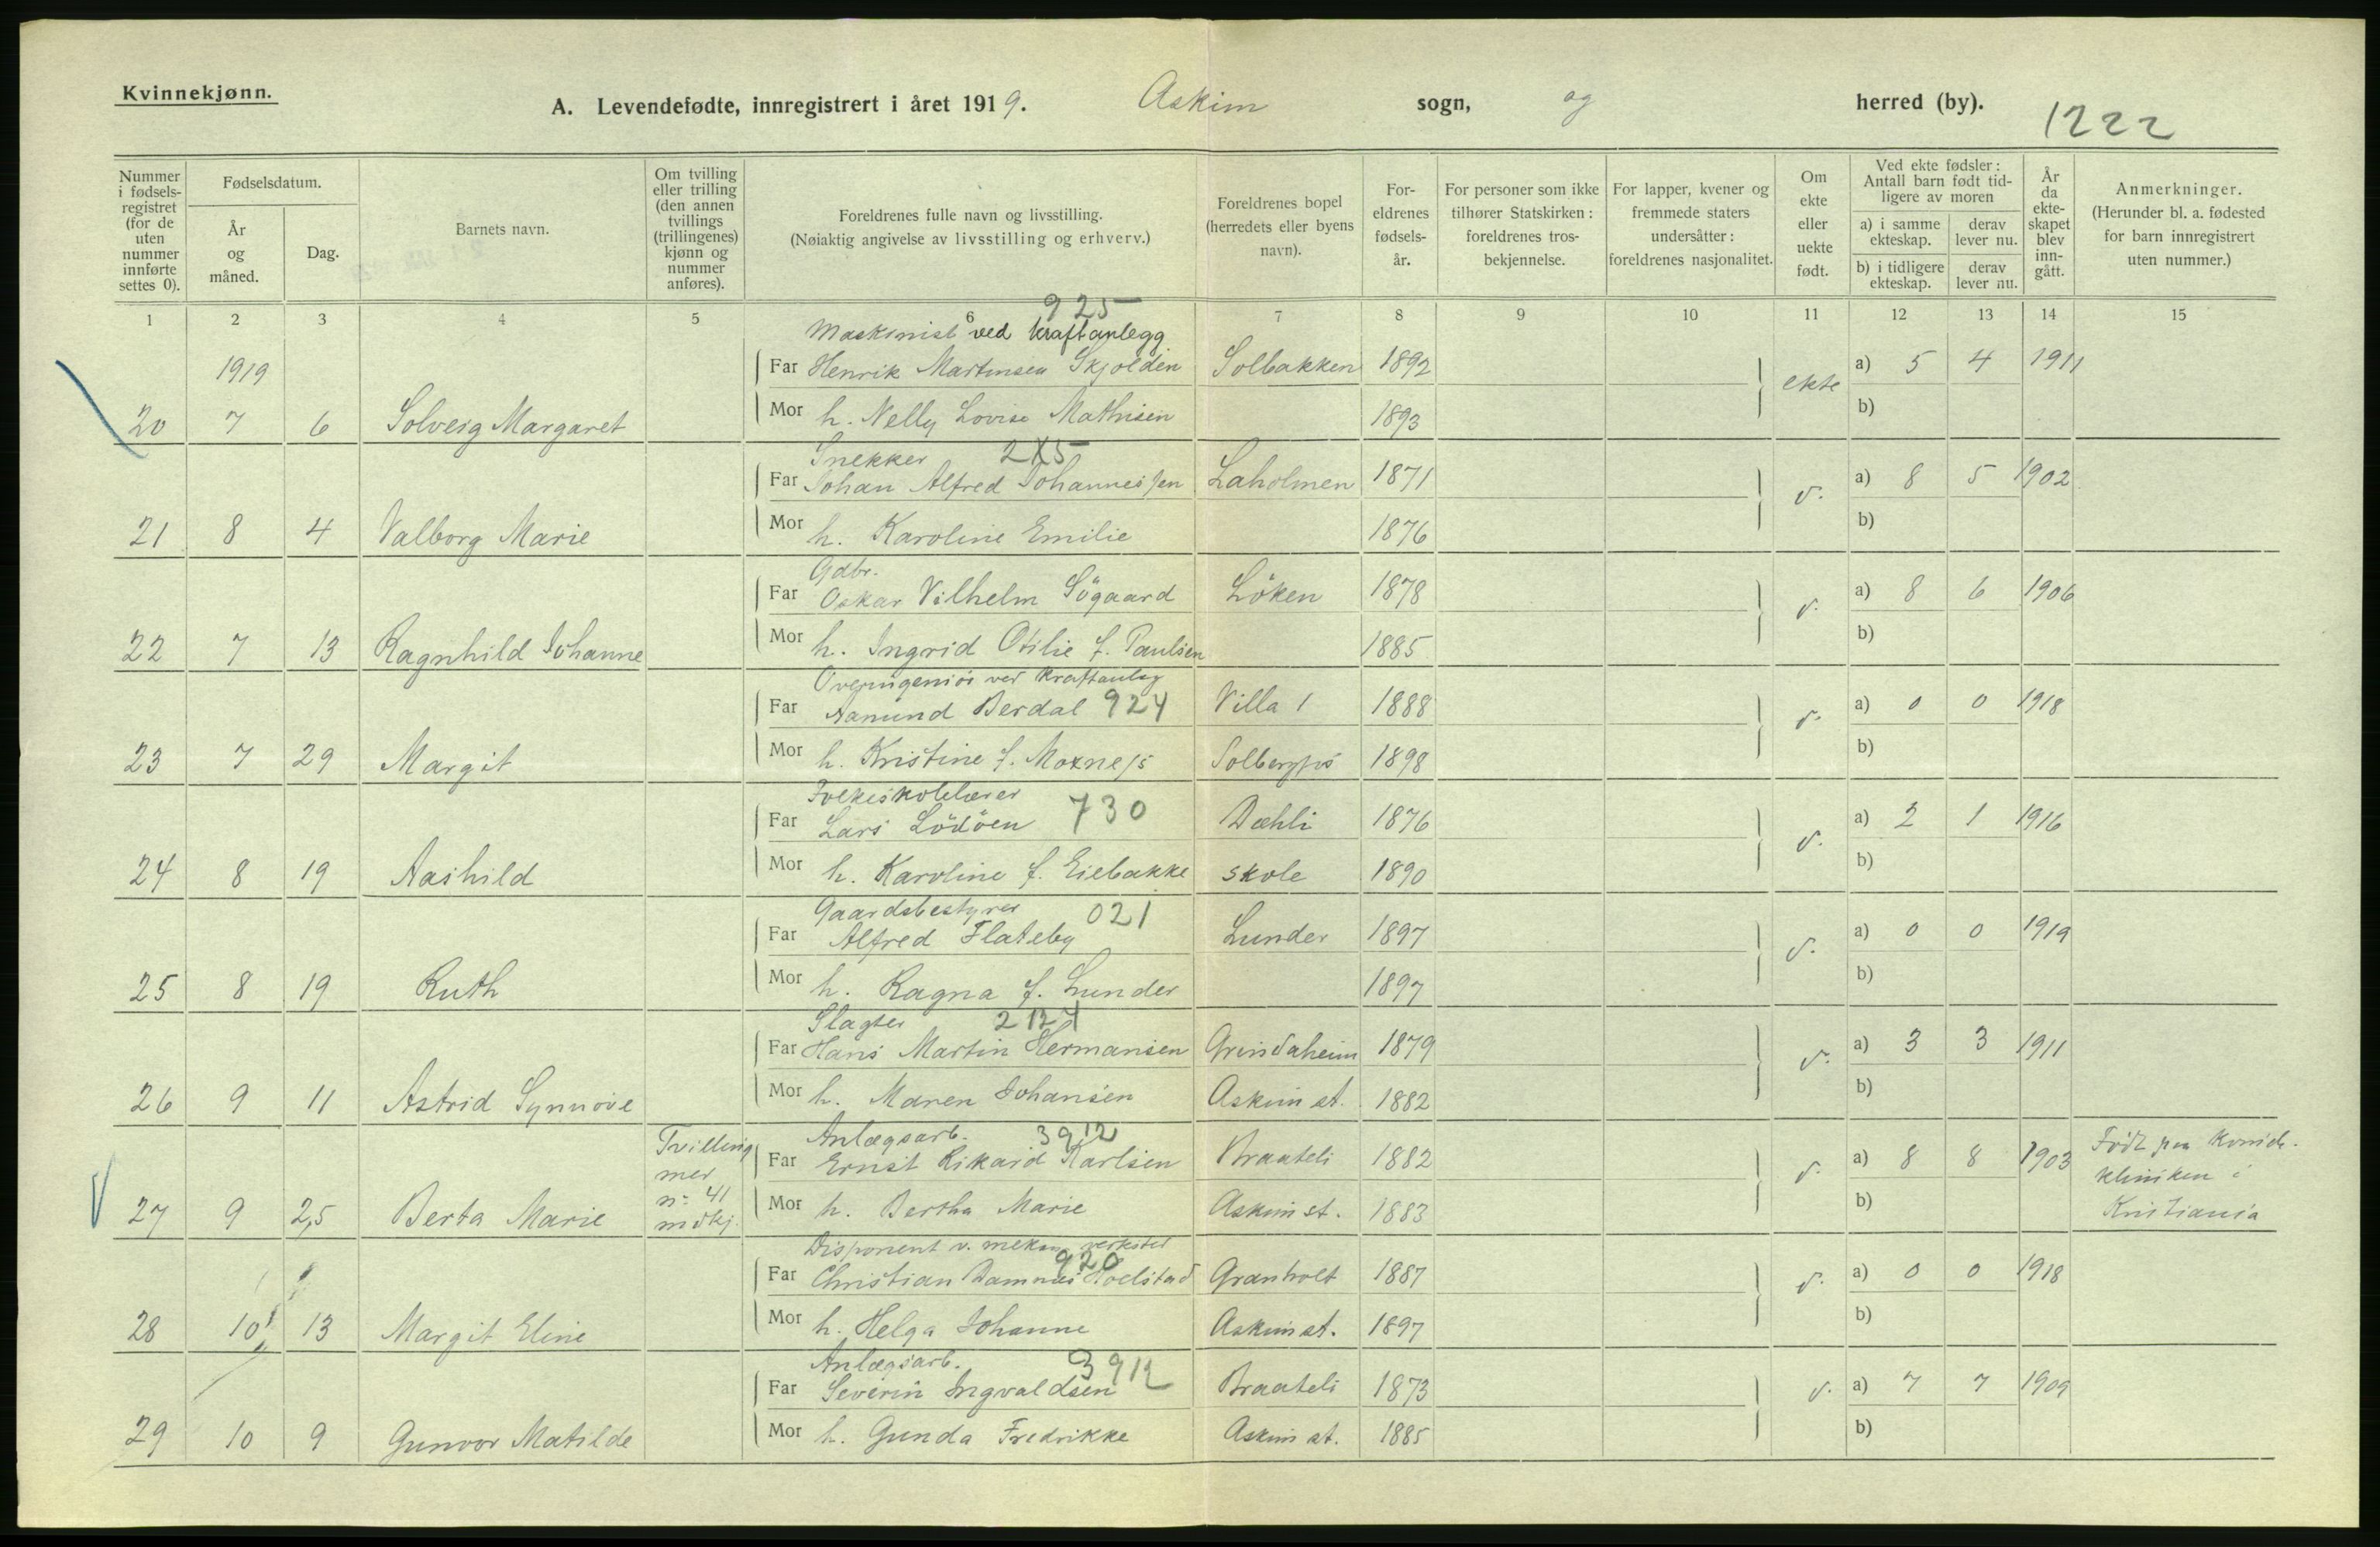 Kvinnekjønn.
A. Levendefødte, innregistrert i året 1919. Askim sogn, og herred (by). 1222
Nummer i fødselsregistret (for de uten nummer innførte settes 0).
Fødselsdatum.
År og måned.
Dag.
Barnets navn.
Om tvilling eller trilling (den annen tvillings (trillingenes) kjønn og nummer anføres).
Foreldrenes fulle navn og livsstilling.
(Nøiaktig angivelse av livsstilling og erhverv.)
Foreldrenes bopel (herredets eller byens navn).
Foreldrenes fødselsår.
For personer som ikke tilhører Statskirken: foreldrenes trosbekjennelse.
For lapper, kvener og fremmede staters undersåtter: foreldrenes nasjonalitet.
Om ekte eller uekte født.
Ved ekte fødsler: Antall barn født tidligere av moren
a) i samme ekteskap. derav lever nu.
b) i tidligere ekteskap. derav lever nu.
År da ekteskapet blev inngått.
Anmerkninger.
(Herunder bl. a. fødested for barn innregistrert uten nummer.)
1 2 3 4 5 6 7 8 9 10 11 12 13 14 15
925
Maskinist ved kraftanlegg
1919 Far Henrik Martinsen Skjolden Solbakken 1892 ekte a) 5 4 1911
20 7 6 Solveig Margaret Mor h. Nelly Lovise Mathisen 1893 b)
Snekker 2X5
Far Johan Alfred Johannessen Laholmen 1871 v. a) 8 5 1902
21 8 4 Valborg Marie Mor h. Karoline Emilie 1876 b)
Gdbr.
Far Oskar Vilhelm Sögaard Löken 1878 v. a) 8 6 1906
22 7 13 Ragnhild Johanne Mor h. Ingrid Otilie f. Paulsen 1885 b)
Overingeniör ved kraftanleg
Far Aamund Berdal 924 Villa 1 1888 v. a) 0 0 1918
23 7 29 Margit Mor h. Kristine f. Moxness Solbergfos 1898 b)
Folkeskolelærer
Far Lars Lödöen 730 Dæhli 1876 v. a) 2 1 1916
24 8 19 Aashild Mor h. Karoline f. Eiebakke skole 1890 b)
Gaardsbestyrer 021
Far Alfred Flateby Lunder 1897 v. a) 0 0 1919
25 8 19 Ruth Mor h. Ragna f. Lunder 1897 b)
Slagter
Far Hans Martin Hermansen Grindaheim 1879 v. a) 3 3 1911
26 9 11 Astrid Synnöve Mor h. Maren Johansen Askim st. 1882 b)
Tvilling med nr 41 mdkj.
Anlægsarb. 3912
Far Ernst Rikard Karlsen Braateli 1882 v. a) 8 8 1903 Födt paa Kvinde-
kliniken i
27 9 25 Berta Marie Mor h. Bertha Marie Askim st. 1883 b) Kristiania
Disponent v. mekan. verksted
920
Far Christian Hoelstad Granholt 1887 v. a) 0 0 1918
28 10 13 Margit Eline Mor h. Helga Johanne Askim st. 1897 b)
Anlægsarb. 3912
Far Severin Ingvaldsen Braateli 1873 v. a) 7 7 1909
29 10 9 Gunvor Matilde Mor h. Gunda Fredrikke Askim st. 1885 b)